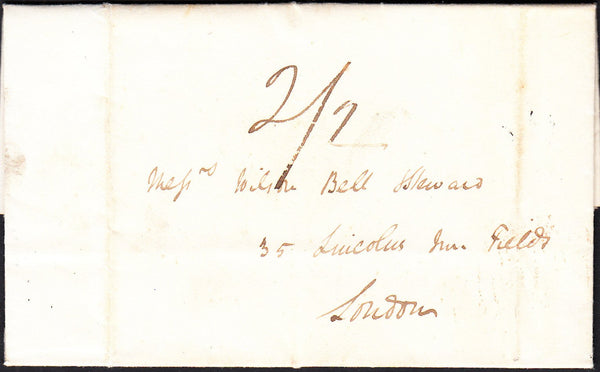 2/2
Messrs Wilson Bell & Steward
35 Lincolns Inn Fields
London